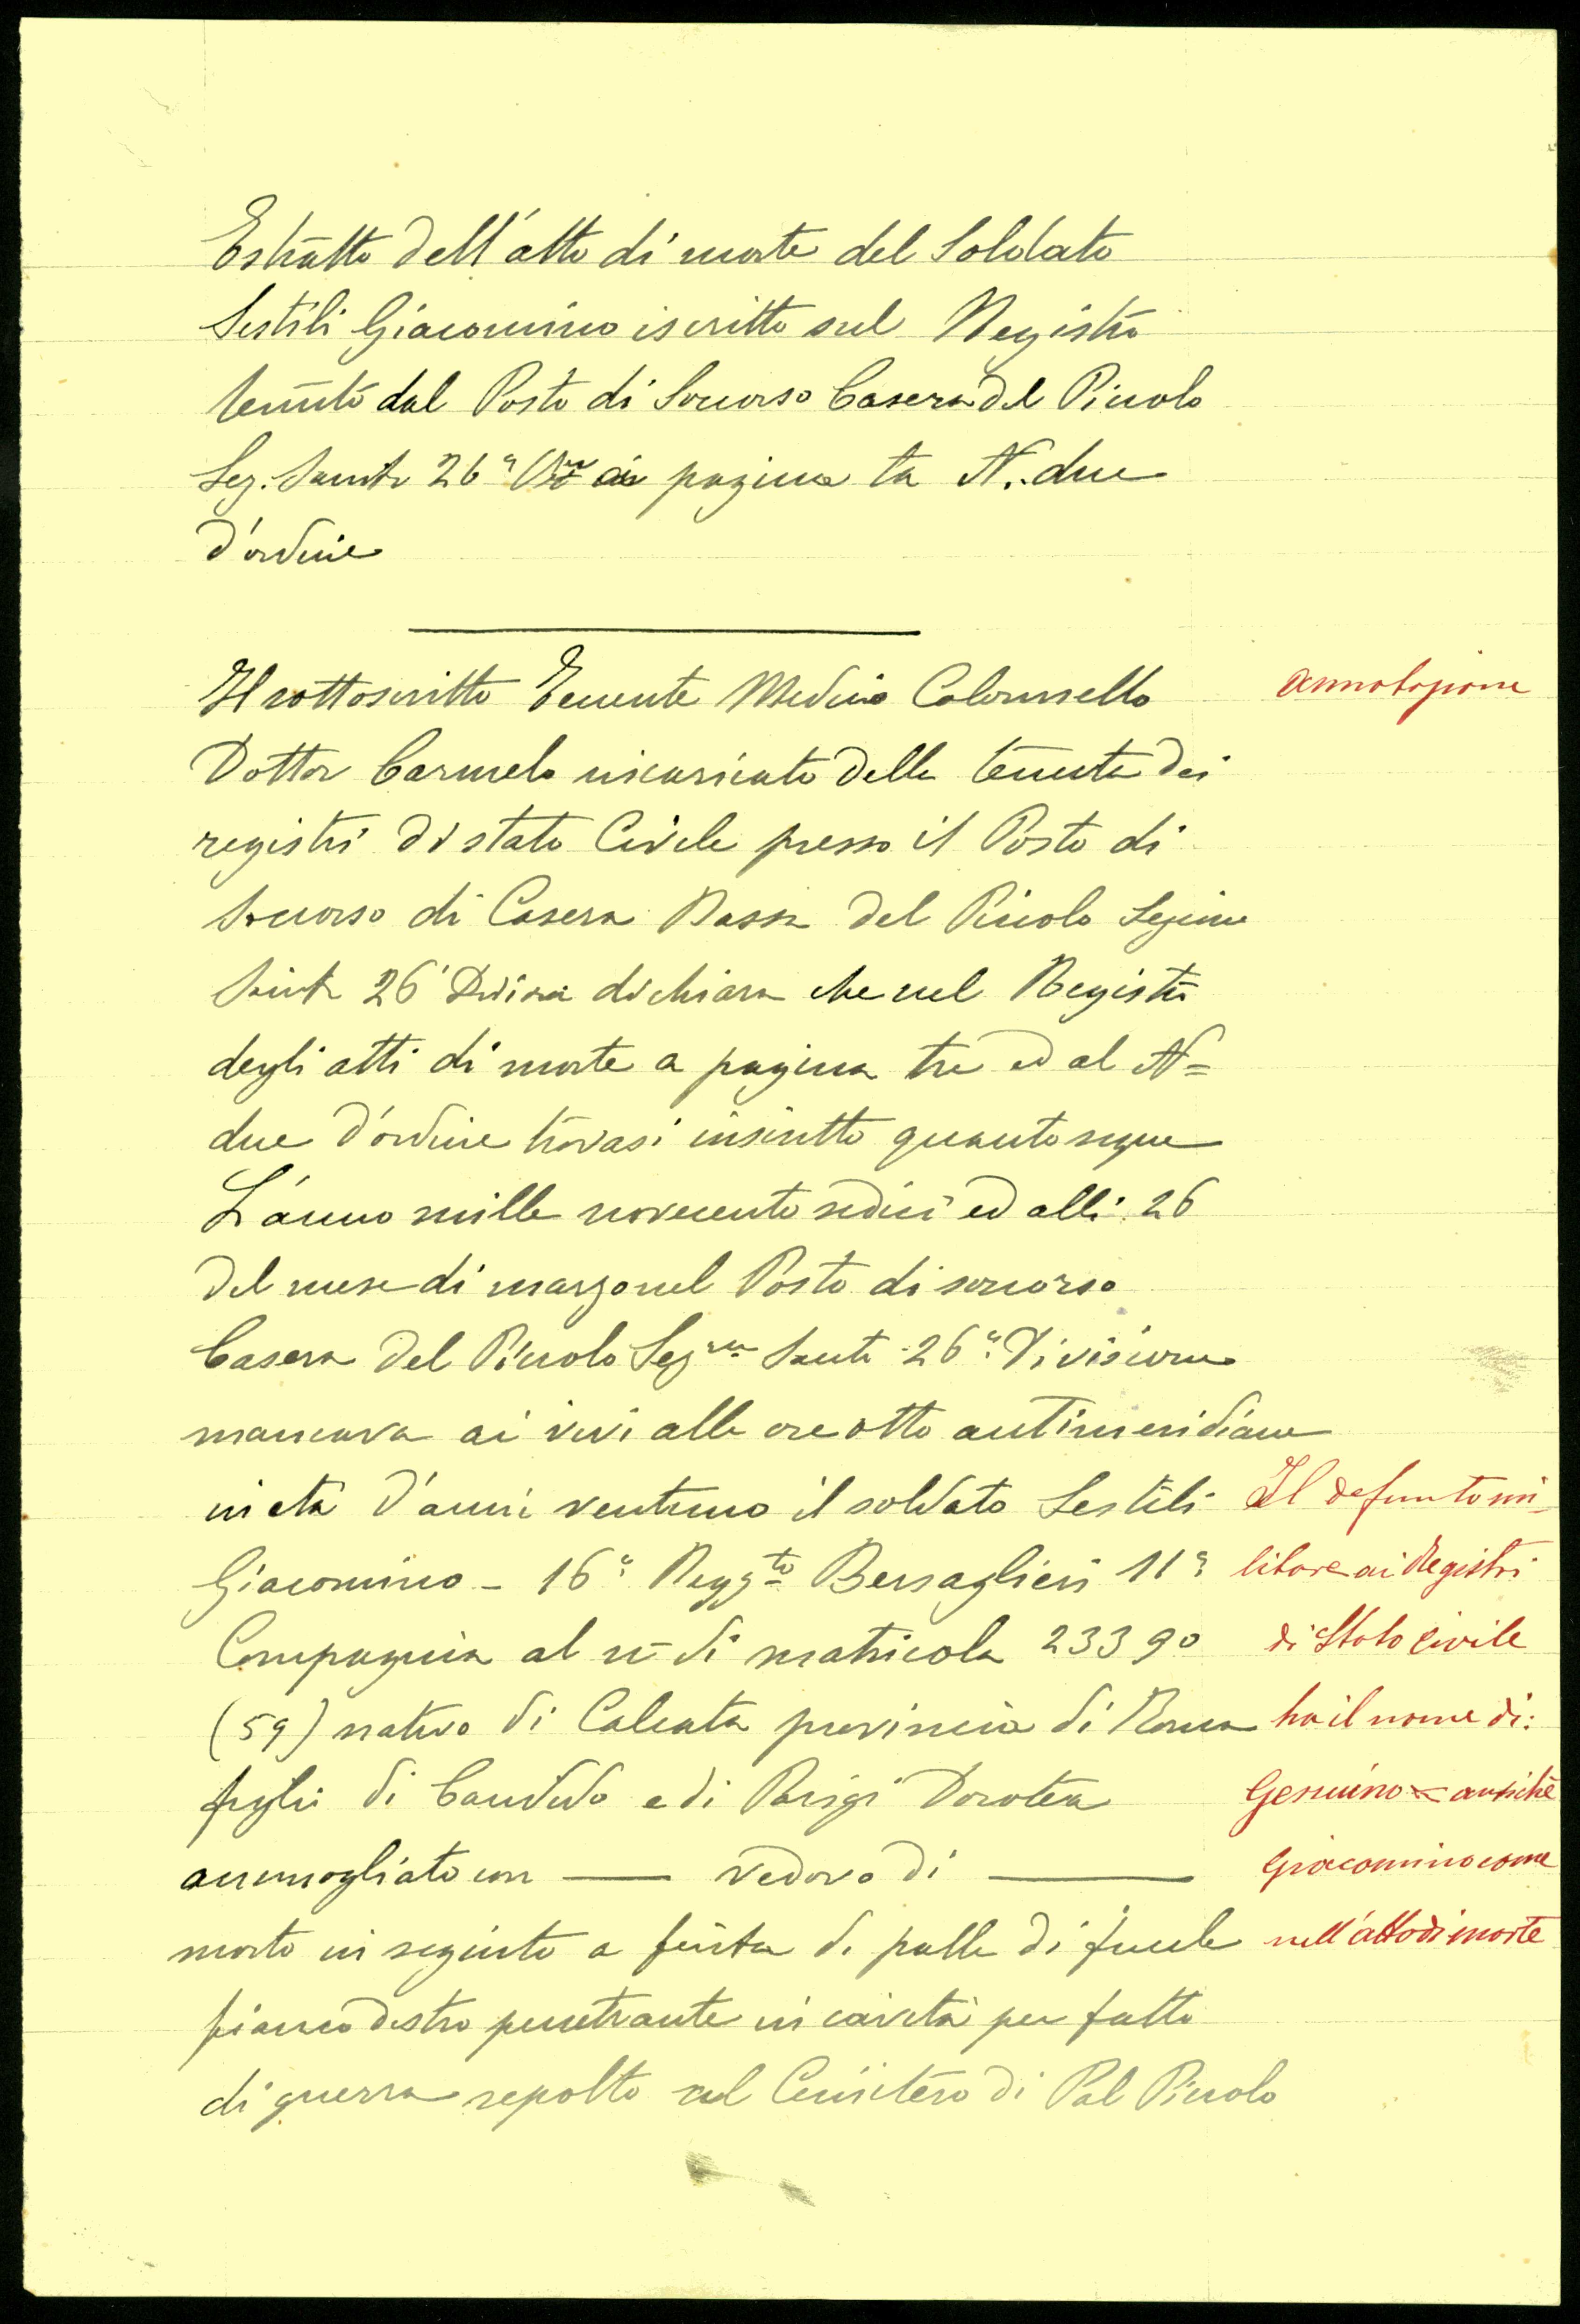 Estratto dell'atto di morte del Soldato
Sestili Giacomino iscritto sul Registro
tenuto dal Posto di Soccorso Casera del Piccolo
Sez. Sanità 26ª pagina N. due
d'ordine
Il sottoscritto Tenente Medico
Dottor Carmelo incaricato della tenuta dei
registri di stato Civile presso il Posto di
Soccorso di Casera Bassa del Piccolo Sezione
Sanità 26ª dichiara che nel Registro
degli atti di morte a pagina tre ed al N=
due d'ordine trovasi inscritto quanto segue
L'anno mille novecento sedici ed alli 26
del mese di marzo nel Posto di soccorso
Casera del Piccolo Sez.ne Sanità 26ª Divisione
mancava ai vivi alle ore otto antimeridiane
in età d'anni ventuno il soldato Sestili
Giacomino - 16° Regg.to Bersaglieri 11ª
Compagnia al n= di matricola 23390
(59) nativo di Calcata provincia di Roma
figlio di Candido e di Parigi Dorotea
ammogliato con — vedovo di —
morto in seguito a ferita di palla di fucile
fianco destro penetrante in cavità per fatto
di guerra sepolto nel Cimitero di Pal Piccolo
Annotazione
Il defunto mi-
litare ai Registri
di Stato civile
ha il nome di:
Gesuino = anzichè
Giacomino come
nell'atto di morte